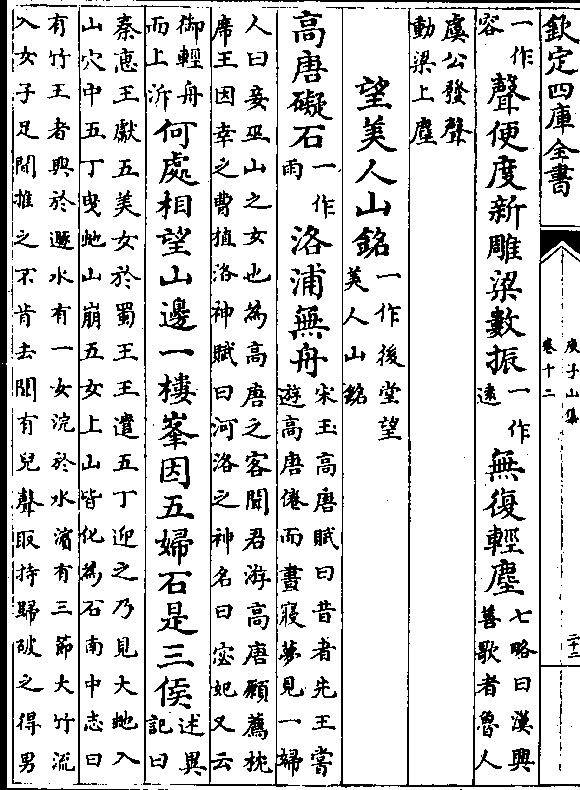 欽定四庫全書
庾子山集
卷十二
二十二
一作容聲便度新雕梁數振一作遠無復輕塵七略曰漢興善歌者魯人
虞公發聲動梁上塵
望美人山銘一作後堂望美人山銘
高唐礙石一作雨洛浦無舟宋玉高唐賦曰昔者先王嘗遊高唐倦而晝寢夢見一婦
人曰妾巫山之女也為高唐之客聞君游高唐願薦枕
席王因幸之曹植洛神賦曰河洛之神名曰宓妃又云
御輕舟而上泝何處相望山邊一樓峯因五婦石是三侯述異記曰
秦惠王獻五美女於蜀王王遣五丁迎之乃見大虵入
山穴中五丁曳虵山崩五女上山皆化為石南中志曰
有竹王者興於遯水有一女浣於水濱有三節大竹流
入女子足間推之不肯去聞有兒聲取持歸破之得男